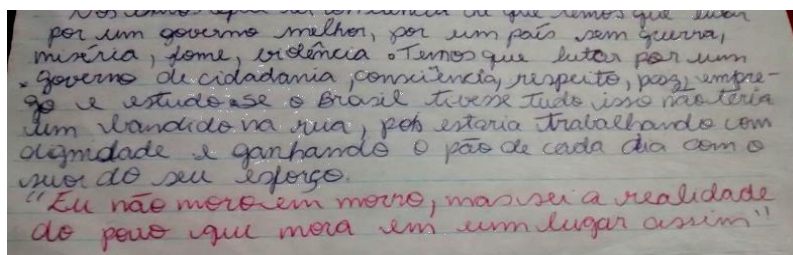 que temos que lutar
por um governo melhor, por um país sem guerra,
miséria, fome, violência. Temos que lutar por um
governo de cidadania, consciência, respeito, paz, empre-
go e estudo. Se o Brasil tivesse tudo isso não teria
um bandido na rua, pois estaria trabalhando com
dignidade e ganhando o pão de cada dia com o
suor do seu esforço.
"Eu não moro em morro, mas sei a realidade
do povo que mora em um lugar assim"